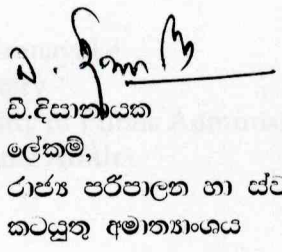 ඩී.දිසානායක
ලේකම්,
රාජ්‍ය පරිපාලන හා ස්ව
කටයුතු අමාත්‍යාංශය